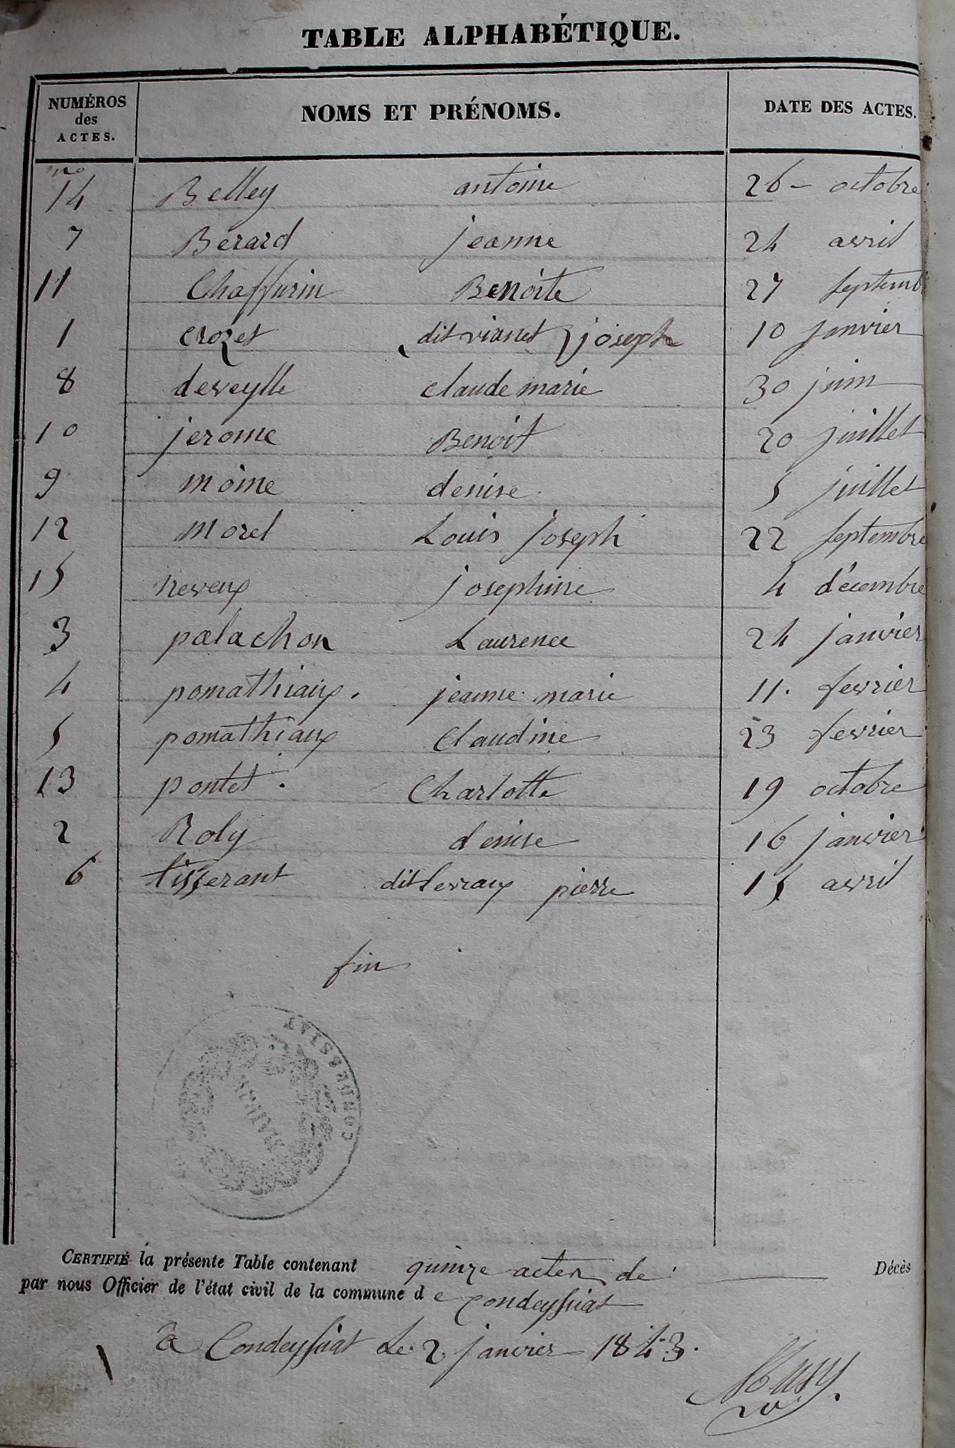 TABLE ALPHABÉTIQUE.
NUMÉROS des ACTES. NOMS ET PRÉNOMS. DATE DES ACTES.
no
14 Belley antoine 26 - octobre
7 Berard jeanne 24 avril
11 Chaffurin Benoite 27 septemb
1 crozet (dit vianet) joseph 10 janvier
8 deveylle claude marie 30 juin
10 jerome Benoit 20 juillet
9 moine denise 5 juillet
12 morel Louis joseph 22 septembre
15 neveux josephine 4 décembre
3 palachon Laurence 24 janvier
4 pomathiaux. jeanne marie 11. fevrier
5 pomathiaux Claudine 23 fevrier
13 pontet. Charlotte 19 octobre
2 Roly denise 16 janvier
6 tisserant dit levraux pierre 15 avril
fin
CONDEYSSIAT
MAIRIE
CERTIFIÉ la présente Table contenant quinze actes de Décès
par nous Officier de l'état civil de la commune d e Condeyssiat
a Condeyssiat Le 2 janvier 1843.